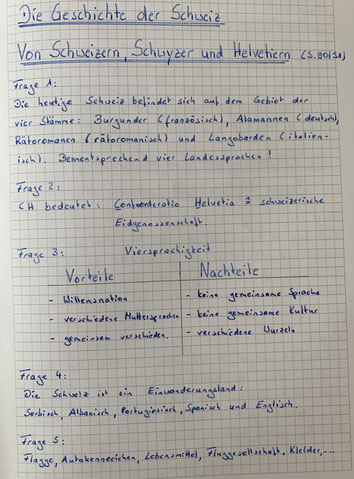 Die Geschichte der Schweiz
Von Schweizern, Schwyzer und Helvetiern (S. 90/91)
Frage 1:
Die heutige Schweiz befindet sich auf dem Gebiet der
vier Stämme: Burgunder (französisch), Alamannen (deutsch),
Rätoromanen (rätoromanisch) und Langobarden (italien-
isch). Dementsprechend vier Landessprachen!
Frage 2:
CH bedeutet: Confoederatio Helvetia ≙ schweizerische
Eidgenossenschaft.
Frage 3: Viersprachigkeit
Vorteile Nachteile
- Willensnation - keine gemeinsame Sprache
- verschiedene Muttersprachen - keine gemeinsame Kultur
- gemeinsam verschieden. - verschiedene Wurzeln
Frage 4:
Die Schweiz ist ein Einwanderungsland:
Serbisch, Albanisch, Portugiesisch, Spanisch und Englisch.
Frage 5:
Flagge, Autokennzeichen, Lebensmittel, Fluggesellschaft, Kleider,...